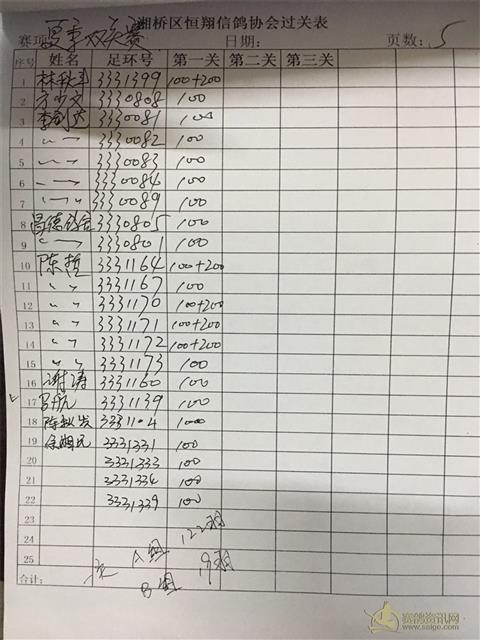 湘桥区恒翔信鸽协会过关表
赛项: 夏季双关赛 日期: 页数: 5
序号 姓名 足环号 第一关 第二关 第三关
1 林秋丰 3331399 100+200
2 方少文 3330808 100
3 李剑 3330081 100
4 〃 3330082 100
5 〃 3330083 100
6 〃 3330084 100
7 〃 3330089 100
8 昌德鸽舍 3330805 100
9 〃 3330801 100
10 陈哲 3331164 100+200
11 〃 3331167 100
12 〃 3331170 100+200
13 〃 3331171 100+200
14 〃 3331172 100+200
15 〃 3331173 100
16 谢涛 3331160 100
17 3331139 100
18 陈 3331104 100
19 余 3331331 100
20 3331333 100
21 3331334 100
22 3331339 100
23
24 A组 122羽
25 B组 19羽
合计:
赛鸽资讯网
www.saige.com